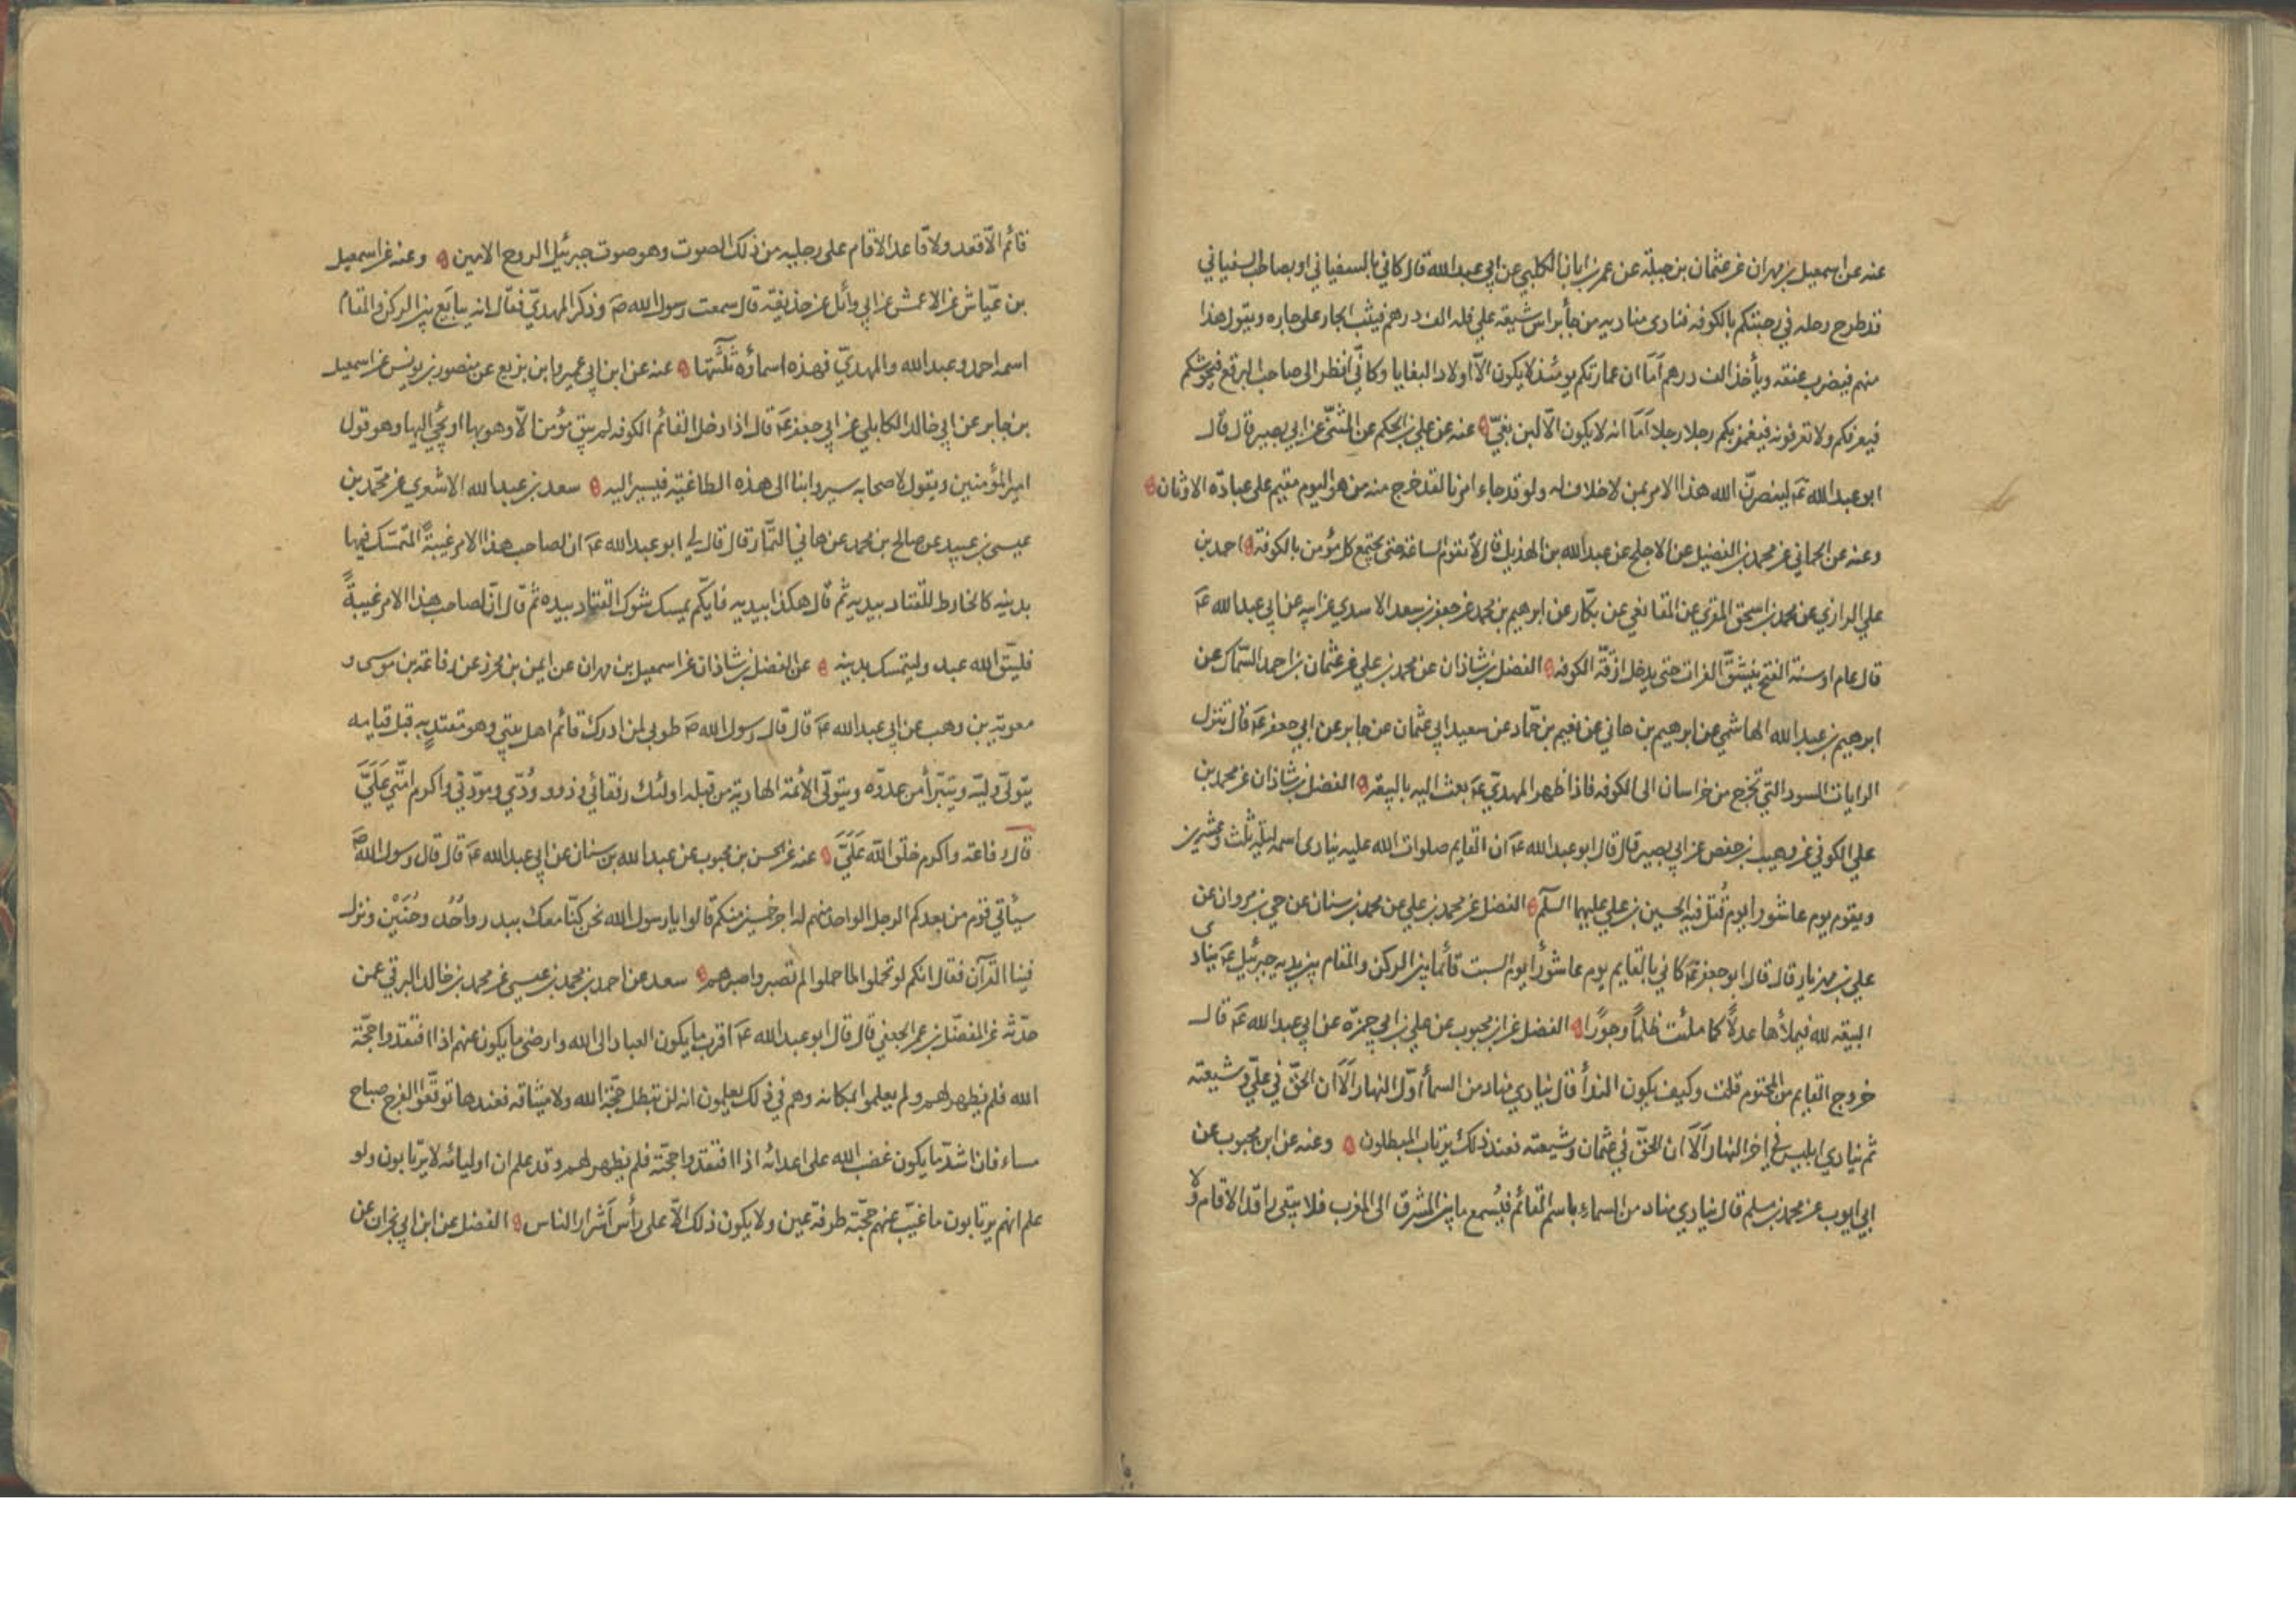 عنه عن اسمعيل بن مهران عن عثمان بن جبلة عن عمر بن ابان الكلبي عن ابي عبد الله قال كاني بالسفياني او بصاحب السفياني
قد طرح رحله في رحبتكم بالكوفه فنادى مناديه من جأ براس شيعه علي فله الف درهم فيثب الجار على جاره ويقول هذا
منهم فيضرب عنقه ويأخذ الف درهم اَمَا ان عمارتكم يومئذ لا يكون الّا اولاد البغايا وكانّي انظر الى صاحب البرقع فيحوشكم
فيعرفكم ولا تعرفونه فيغمز بكم رجلا رجلا اَمَا انه لا يكون الّا ابن بغيّ عنه عن علي بن الحكم عن المثنّى عن ابي بصير قال قال
ابو عبد الله عَ لينصرنّ الله هذا الامر بمن لا خلاق له ولو قد جاء امرنا لقد خرج منه من هو اليوم مقيم على عبادة الاوثان
وعنه عن الحماني عن محمد بن الفضيل عن الاجلح عن عبد الله بن الهذيل قال لا تقوم الساعة حتى يجتمع كل مؤمن بالكوفة احمد بن
علي الرازي عن محمد بن اسحق المقري عن المقانعي عن بكّار عن ابرهيم بن محمد عن جعفر بن سعد الاسدي عن ابيه عن ابي عبد الله عَ
قال عام او سنة الفتح ينشقّ الفرات حتى يدخل ازقّة الكوفه الفضل بن شاذان عن محمد بن علي عن عثمان بن احمد السّماك عن
ابرهيم بن عبد الله الهاشمي عن ابرهيم بن هاني عن نعيم بن حمّاد عن سعيد ابي عثمان عن جابر عن ابي جعفر عَ قال تنزل
الرايات السود التي تخرج من خراسان الى الكوفه فاذا ظهر المهديّ عَ بعث اليه بالبيعة الفضل بن شاذان عن محمد بن
علي الكوفي عن وهيب بن حفص عن ابي بصير قال قال ابو عبد الله عَ ان القايم صلوات الله عليه ينادى اسمه ليلة ثلث وعشرين
ويقوم يوم عاشورا يوم قُتل فيه الحسين بن علي عليهما السلم الفضل عن محمد بن علي عن محمد بن سنان عن حي بن مروان عن
علي بن مهزيار قال قال ابو جعفر عَ كاني بالقايم يوم عاشورأ يوم السبت قائما بين الركن والمقام بين يديه جبرئيل عَ ينادى
البيعة لله فيملأها عدلاً كما ملئت ظلماً وجورًا الفضل عن ابن محبوب عن علي بن ابي حمزة عن ابي عبد الله عَ قال
خروج القايم من المحتوم قلت وكيف يكون الندأ قال ينادي مناد من السمأ اوّل النهار اَلَا ان الحقّ في عليّ وشيعته
ثم ينادي ابليس في اخر النهار اَلَا ان الحقّ في عثمان وشيعته فعند ذلك يرتاب المبطلون وعنه عن ابن محبوب عن
ابي ايوب عن محمد بن مسلم قال ينادي مناد من السماء باسم القائم فيُسمع ما بين المشرق الى المغرب فلا يبقى راقد الا قام ولا
قائم الّا قعد ولا قاعد الا قام على رجليه من ذلك الصوت وهو صوت جبرئيل الروح الامين وعنه عن اسمعيل
بن عيّاش عن الاعمش عن ابي وائل عن حذيفة قال سمعت رسول الله صَ وذكر المهديّ فقال انه يبايَع بين الركن والمقام
اسمه احمد وعبد الله والمهديّ فهذه اسماؤه ثلثتها عنه عن ابن ابي عمير وابن بزيع عن منصور بن يونس عن اسمعيل
بن جابر عن ابي خالد الكابلي عن ابي جعفر عَ قال اذا دخل القائم الكوفه لم يبق مؤمن الّا وهو بها او يجئ اليها وهو قول
امير المؤمنين ويقول لاصحابه سيروا بنا الى هذه الطاغية فيسير اليه سعد بن عبد الله الاشعري عن محمّد بن
عيسى بن عبيد عن صالح بن محمد عن هاني التمّار قال قال لي ابو عبد الله عَ ان لصاحب هذا الامر غيبةً المتمسّك فيها
بدينه كالخارط للقتاد بيديه ثم قال هكذا بيديه فايّكم يمسك شوك القتاد بيده ثم قال انّ لصاحب هذا الامر غيبةً
فليتّق الله عبد وليتمسك بدينه عن الفضل بن شاذان عن اسمعيل بن مهران عن ايمن بن محرز عن رفاعة بن موسى و
معوية بن وهب عن ابي عبد الله عَ قال قال رسول الله صَ طوبى لمن ادرك قائم اهل بيتي وهو مقتدٍ به قبل قيامه
يتولّى وليّه ويتبرّأ من عدوّه ويتولّى الائمة الهادية من قبله اولئك رفقائي وذوو ودّي ومودّتي واكرم امّتي عَلَيَّ
قال رفاعة واكرم خلق الله عَلَيَّ عنه عن الحسن بن محبوب عن عبد الله بن سنان عن ابي عبد الله عَ قال قال رسول الله صَ
سيأتي قوم من بعدكم الرجل الواحد منهم له اجر خمسين منكم قالوا يا رسول الله نحن كنّا معك ببدر واُحُد وحُنَيْن ونزل
فينا القرآن فقال انكم لو تحملوا لما حملوا لم تصبروا صبرهم سعد عن احمد بن محمد بن عيسى عن محمد بن خالد البرقي عمن
حدّثه عن المفضّل بن عمر الجعفي قال قال ابو عبد الله عَ اقرب ما يكون العباد الى الله وارضى ما يكون عنهم اذا افتقدوا حجّة
الله فلم يظهر لهم ولم يعلموا بمكانه وهم في ذلك يعلمون انه لن تبطل حجّة الله ولا ميثاقه فعندها توقّعوا الفرج صباح
مساء فان اشدّ ما يكون غضب الله على اعدائه اذا افتقدوا حجّته فلم يظهر لهم وقد علم ان اوليائه لا يرتابون ولو
علم انهم يرتابون ما غيّب عنهم حجّته طرفة عين ولا يكون ذلك الّا على رأس اَشرار الناس الفضل عن ابن ابي نجران عن